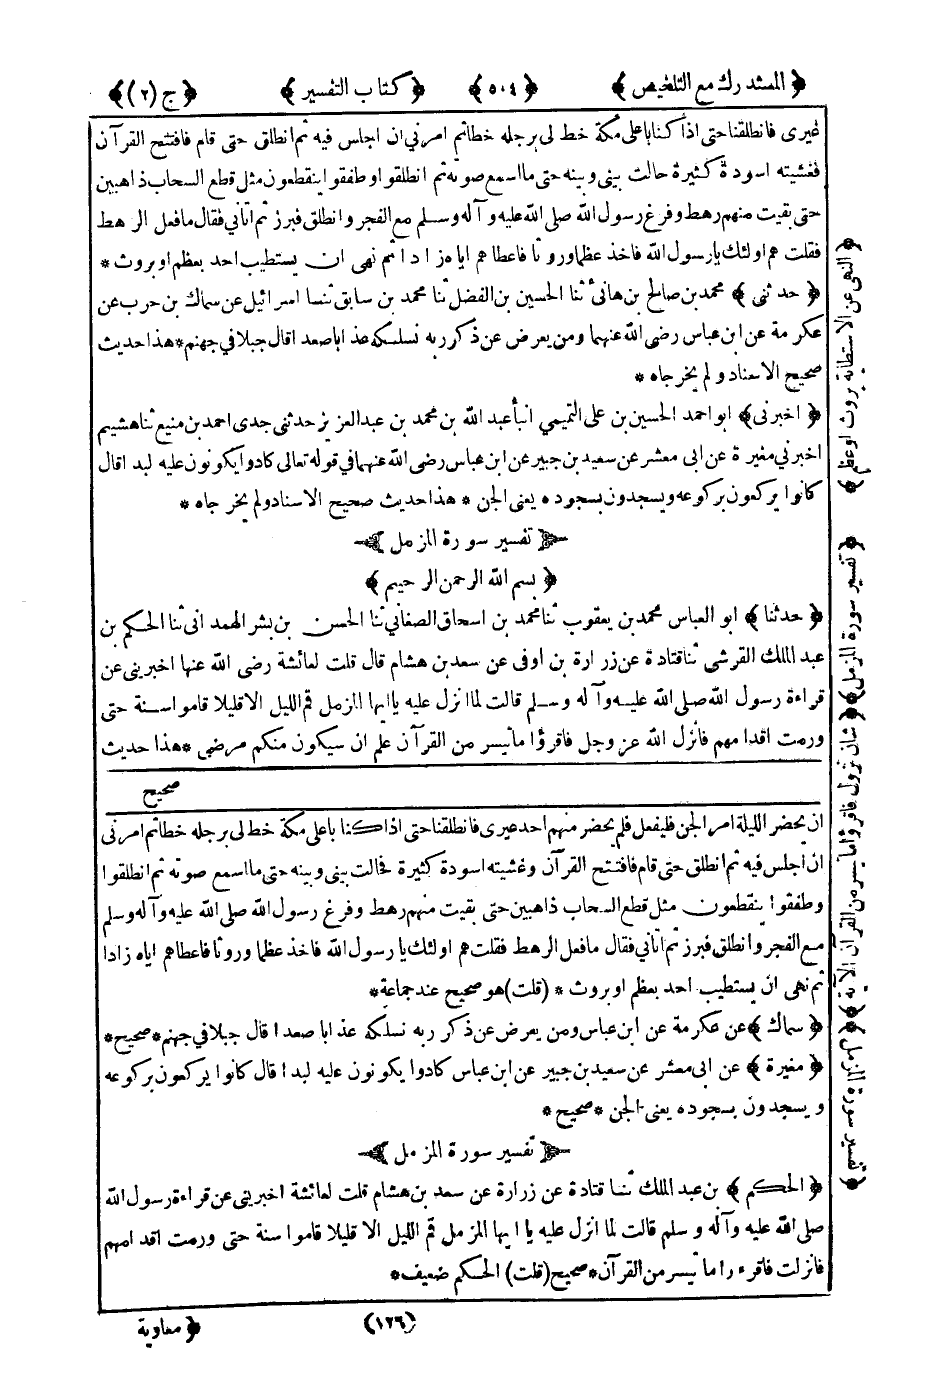 ﴿ المستدرك مع التلخيص ﴾ ﴿ ٥٠٤ ﴾ ﴿ كتاب التفسير ﴾ ﴿ ج (٢) ﴾
غيرى فانطلقنا حتى اذا كنا باعلى مكة خط لى برجله خطا ثم امرني ان اجلس فيه ثم انطلق حتى قام فافتتح القرآن
فغشيته اسودة كثيرة حالت بينى وبينه حتى ما اسمع صوته ثم انطلقوا وطفقوا ينقطعون مثل قطع السحاب ذاهبين
حتى بقيت منهم رهط وفرغ رسول الله صلى الله عليه وآله وسلم مع الفجر وانطلق فبرز ثم اتاني فقال ما فعل الرهط
فقلت هم اولئك يا رسول الله فاخذ عظما وروثا فاعطاهم اياه زادا ثم نهى ان يستطيب احد بعظم او بروث *
﴿ حدثنى ﴾ محمد بن صالح بن هانئ ثنا الحسين بن الفضل ثنا محمد بن سابق ثنا اسرائيل عن سماك بن حرب عن
عكرمة عن ابن عباس رضى الله عنهما ومن يعرض عن ذكر ربه نسلكه عذابا صعدا قال جبلا في جهنم * هذا حديث
صحيح الاسناد ولم يخرجاه *
﴿ اخبرنى ﴾ ابو احمد الحسين بن على التميمي انبأ عبد الله بن محمد بن عبد العزيز حدثنى جدى احمد بن منيع ثنا هشيم
اخبرني مغيرة عن ابى معشر عن سعيد بن جبير عن ابن عباس رضى الله عنهما في قوله تعالى كادوا يكونون عليه لبدا قال
كانوا يركعون بركوعه ويسجدون بسجوده يعنى الجن * هذا حديث صحيح الاسناد ولم يخرجاه *
تفسير سورة المزمل
﴿ بسم الله الرحمن الرحيم ﴾
﴿ حدثنا ﴾ ابو العباس محمد بن يعقوب ثنا محمد بن اسحاق الصغاني ثنا الحسن بن بشر الهمدانى ثنا الحكم بن
عبد الملك القرشى ثنا قتادة عن زرارة بن اوفى عن سعد بن هشام قال قلت لعائشة رضى الله عنها اخبرينى عن
قراءة رسول الله صلى الله عليه وآله وسلم قالت لما انزل عليه يا ايها المزمل قم الليل الا قليلا قاموا سنة حتى
ورمت اقدامهم فانزل الله عز وجل فاقرؤا ما تيسر من القرآن علم ان سيكون منكم مرضى * هذا حديث
صحيح
ان يحضر الليلة امر الجن فليفعل فلم يحضر منهم احد غيرى فانطلقنا حتى اذا كنا باعلى مكة خط لى برجله خطا ثم امرنى
ان اجلس فيه ثم انطلق حتى قام فافتتح القرآن وغشيته اسودة كثيرة فحالت بينى وبينه حتى ما اسمع صوته ثم انطلقوا
وطفقوا ينقطعون مثل قطع السحاب ذاهبين حتى بقيت منهم رهط وفرغ رسول الله صلى الله عليه وآله وسلم
مع الفجر وانطلق فبرز ثم اتاني فقال ما فعل الرهط فقلت هم اولئك يا رسول الله فاخذ عظما وروثا فاعطاهم اياه زادا
ثم نهى ان يستطيب احد بعظم او بروث * (قلت) هو صحيح عند جماعة *
﴿ سماك ﴾ عن عكرمة عن ابن عباس ومن يعرض عن ذكر ربه نسلكه عذابا صعدا قال جبلا في جهنم * صحيح *
﴿ مغيرة ﴾ عن ابى معشر عن سعيد بن جبير عن ابن عباس كادوا يكونون عليه لبدا قال كانوا يركعون بركوعه
ويسجدون بسجوده يعنى الجن * صحيح *
تفسير سورة المزمل
﴿ الحكم ﴾ بن عبد الملك ثنا قتادة عن زرارة عن سعد بن هشام قلت لعائشة اخبرينى عن قراءة رسول الله
صلى الله عليه وآله وسلم قالت لما انزل عليه يا ايها المزمل قم الليل الا قليلا قاموا سنة حتى ورمت اقدامهم
فانزلت فاقرءوا ما تيسر من القرآن * صحيح (قلت) الحكم ضعيف *
(١٢٦) ﴿ معاوية
﴿ النهى عن الاستطابة بروث او عظم ﴾
﴿ تفسير سورة المزمل ﴾ ﴿ شان نزول فاقرؤا ما تيسر من القرآن الآية ﴾ ﴿ تفسير سورة المزمل ﴾